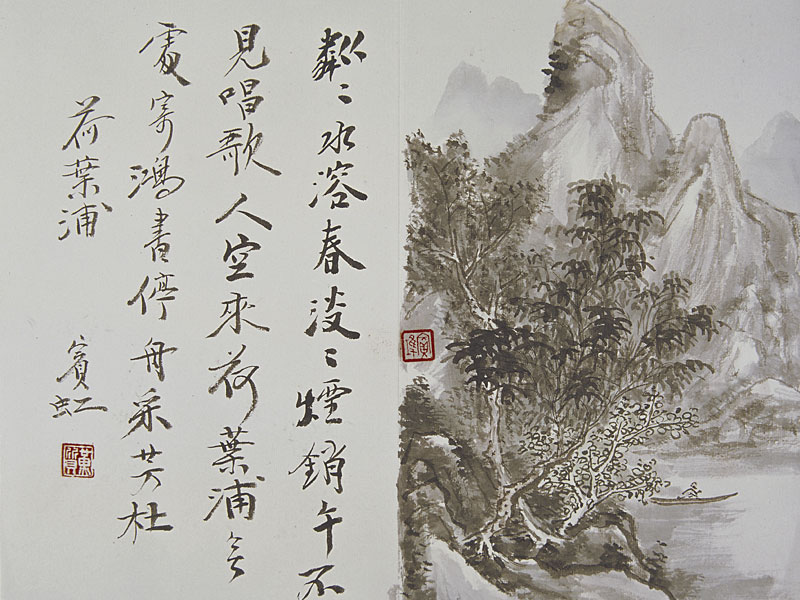 粼〻水溶春淡〻煙銷午不
見唱歌人空來荷葉浦无
處寄鴻書停舟采芳杜
荷葉浦
賓虹